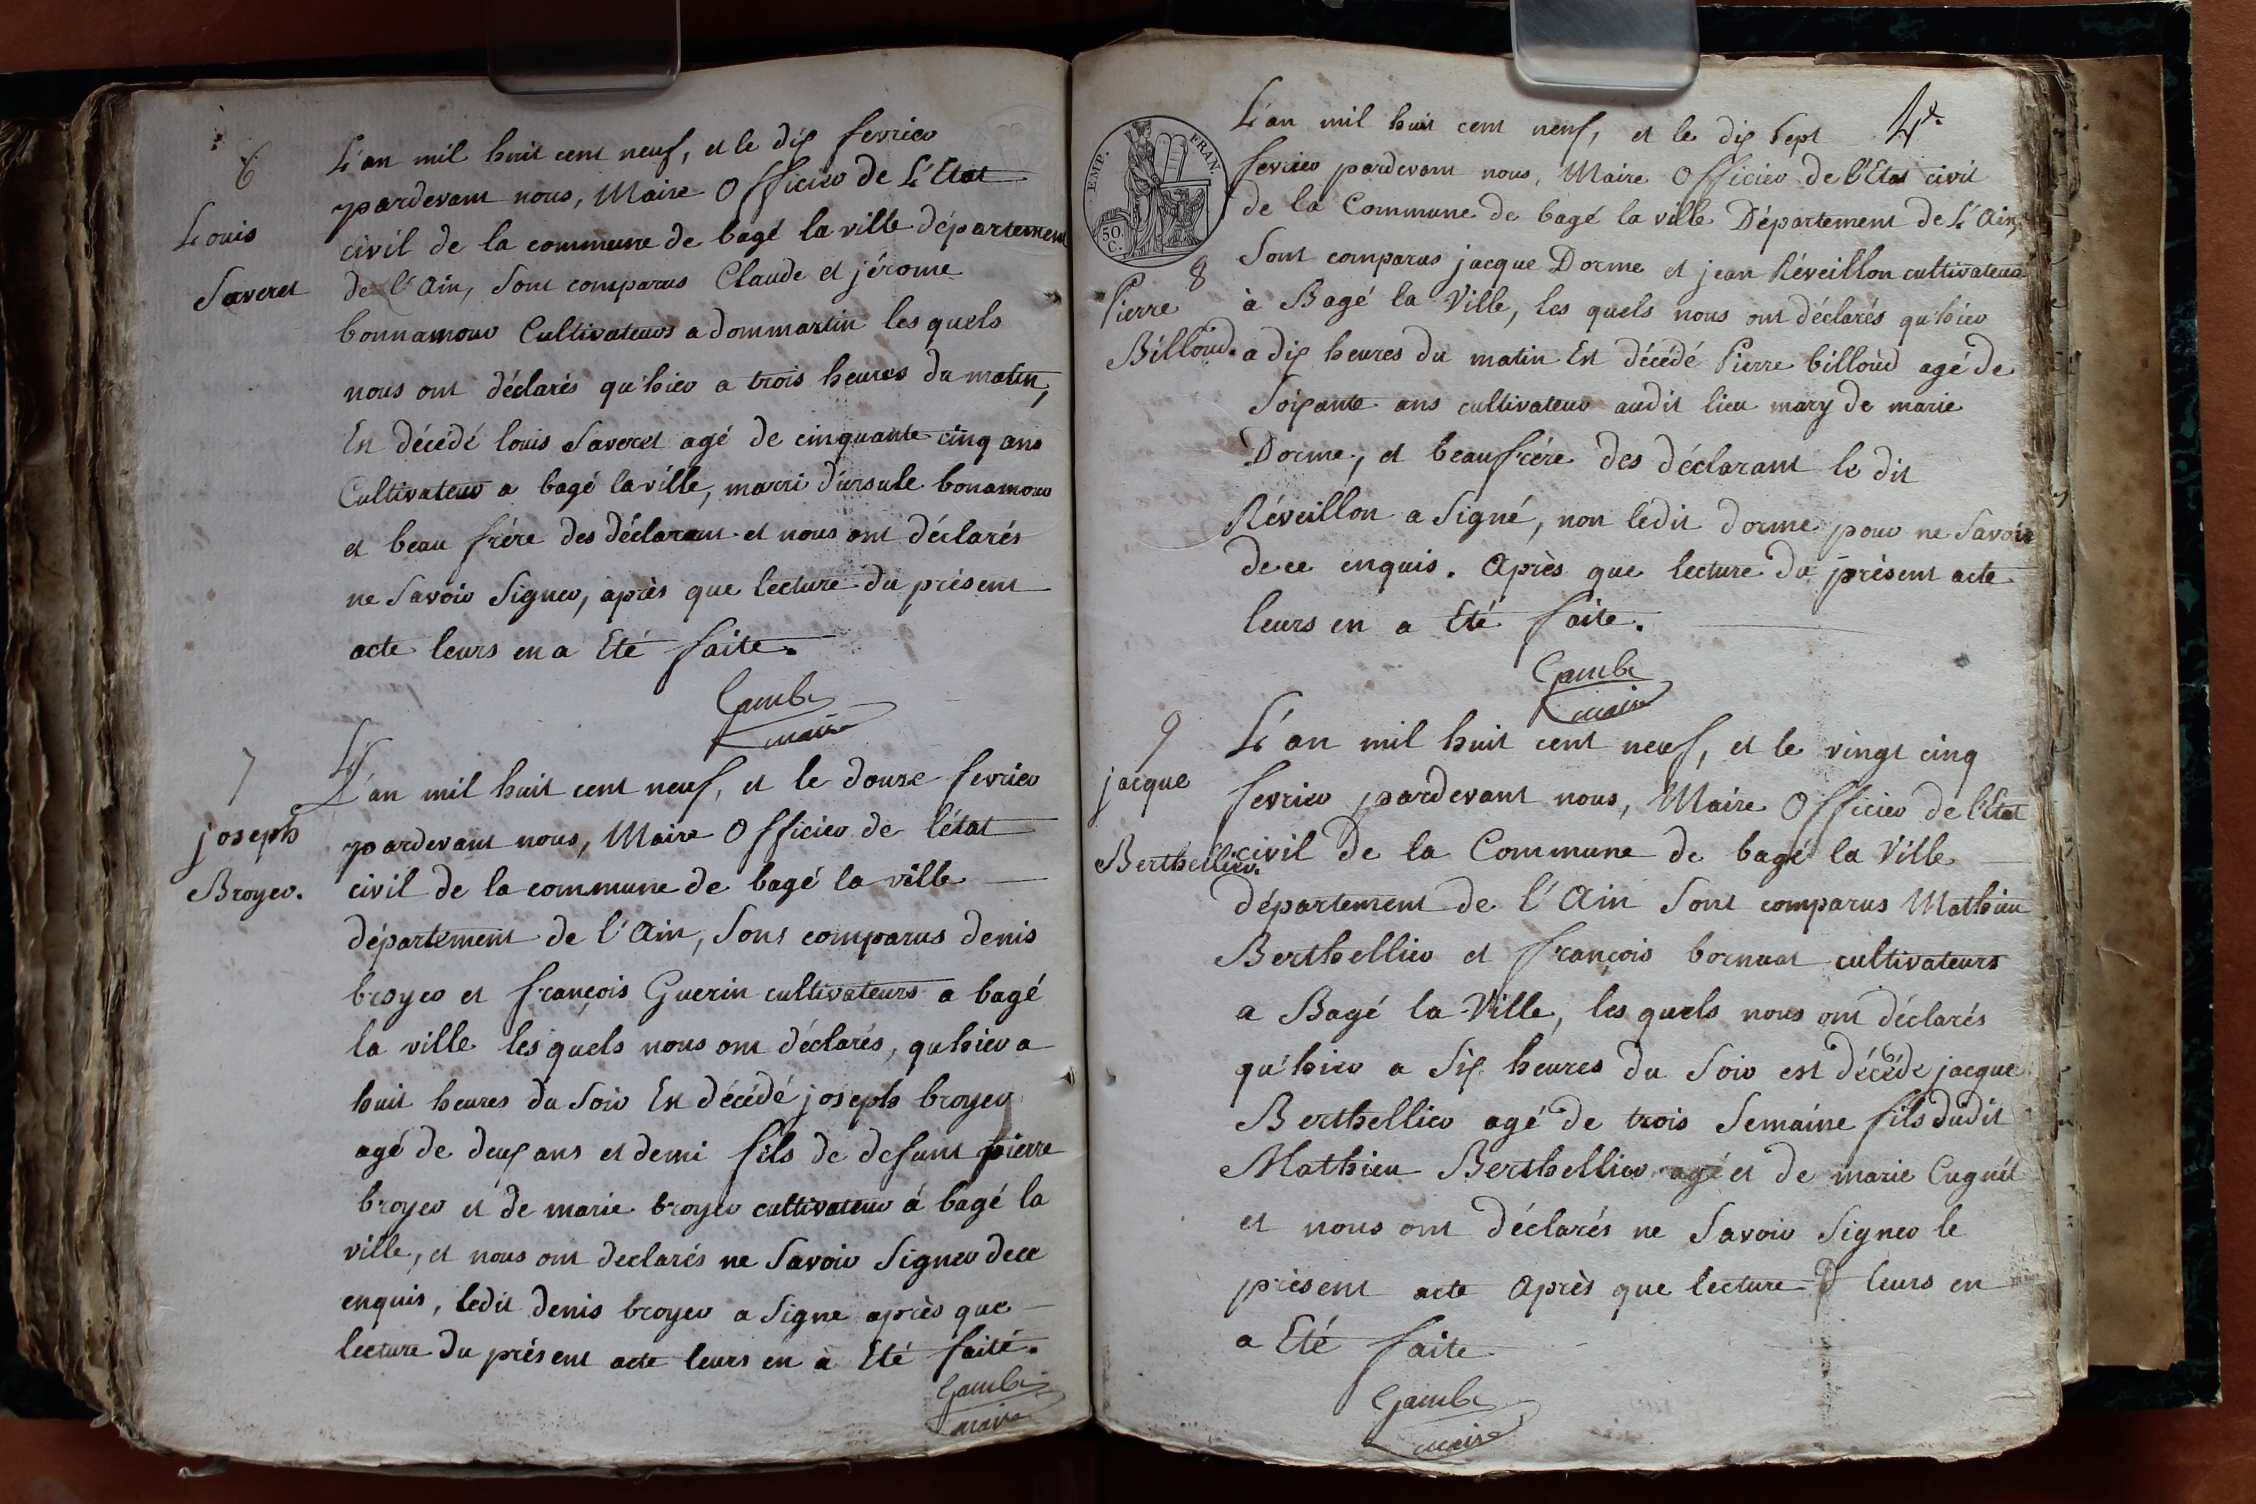 6
Louis
Saveret
L'an mil huit cent neuf, et le dix fevrier
pardevant nous, Maire Officier de L'Etat
civil de la commune de bagé la ville département
de l'Ain, Sont comparus Claude et jérome
bonnamour Cultivateurs a dommartin les quels
nous ont déclarés qu'hier a trois heures du matin,
Est décédé louis Saveret agé de cinquante cinq ans
Cultivateur a bagé la ville, marri d'ursule bonamour
et beau frére des déclarant et nous ont déclarés
ne Savoir Signer, après que lecture du présent
acte leurs en a Eté faite.
Gambe
maire
7
joseph
Broyer.
L'an mil huit cent neuf, et le douze fevrier
pardevant nous, Maire Officier de l'état
civil de la commune de bagé la ville
département de l'Ain, Sont comparus denis
broyer et françois Guerin cultivateurs a bagé
la ville les quels nous ont déclarés, qu'hier a
huit heures du Soir Est décédé joseph broyer
agé de deux ans et demi fils de defunt pierre
broyer et de marie broyer cultivateur à bagé la
ville, et nous ont declarés ne Savoir Signer de ce
enquis, ledit denis broyer a Signe après que
lecture du présent acte leurs en à Eté faité.
Gambe
maire
4e.
EMP. FRAN.
50
C.
8
Pierre
Billoud.
L'an mil huit cent neuf, et le dix Sept
fevrier pardevant nous, Maire Officier de l'Etat civil
de la Commune de bagé la ville Département de L'Ain,
Sont comparus jacque Dorme et jean Réveillon cultivateurs
à Bagé la Ville, les quels nous ont déclarés qu'hier
a dix heures du matin Est décédé Pierre billoud agé de
Soixante ans cultivateur audit lieu mary de marie
Dorme, et beaufrére des déclarant le dit
Réveillon a Signé, non ledit dorme pour ne Savoir
de ce enquis. Après que lecture du présent acte
leurs en a Eté faite.
Gambe
maire
9
jacque
Berthellier.
L'an mil huit cent neuf, et le vingt cinq
fevrier pardevant nous, Maire Officier de l'Etat
civil de la Commune de bagé la Ville
département de l'Ain Sont comparus Mathieu
Berthellier et françois bornuat cultivateurs
a Bagé la Ville, les quels nous ont déclarés
qu'hier a Six heures du Soir est décédé jacque
Berthellier agé de trois Semaine fils dudit
Mathieu Berthellier agé et de marie Cugnet
et nous ont déclarés ne Savoir Signer le
présent acte Après que lecture leurs en
a Eté faite
Gambe
maire